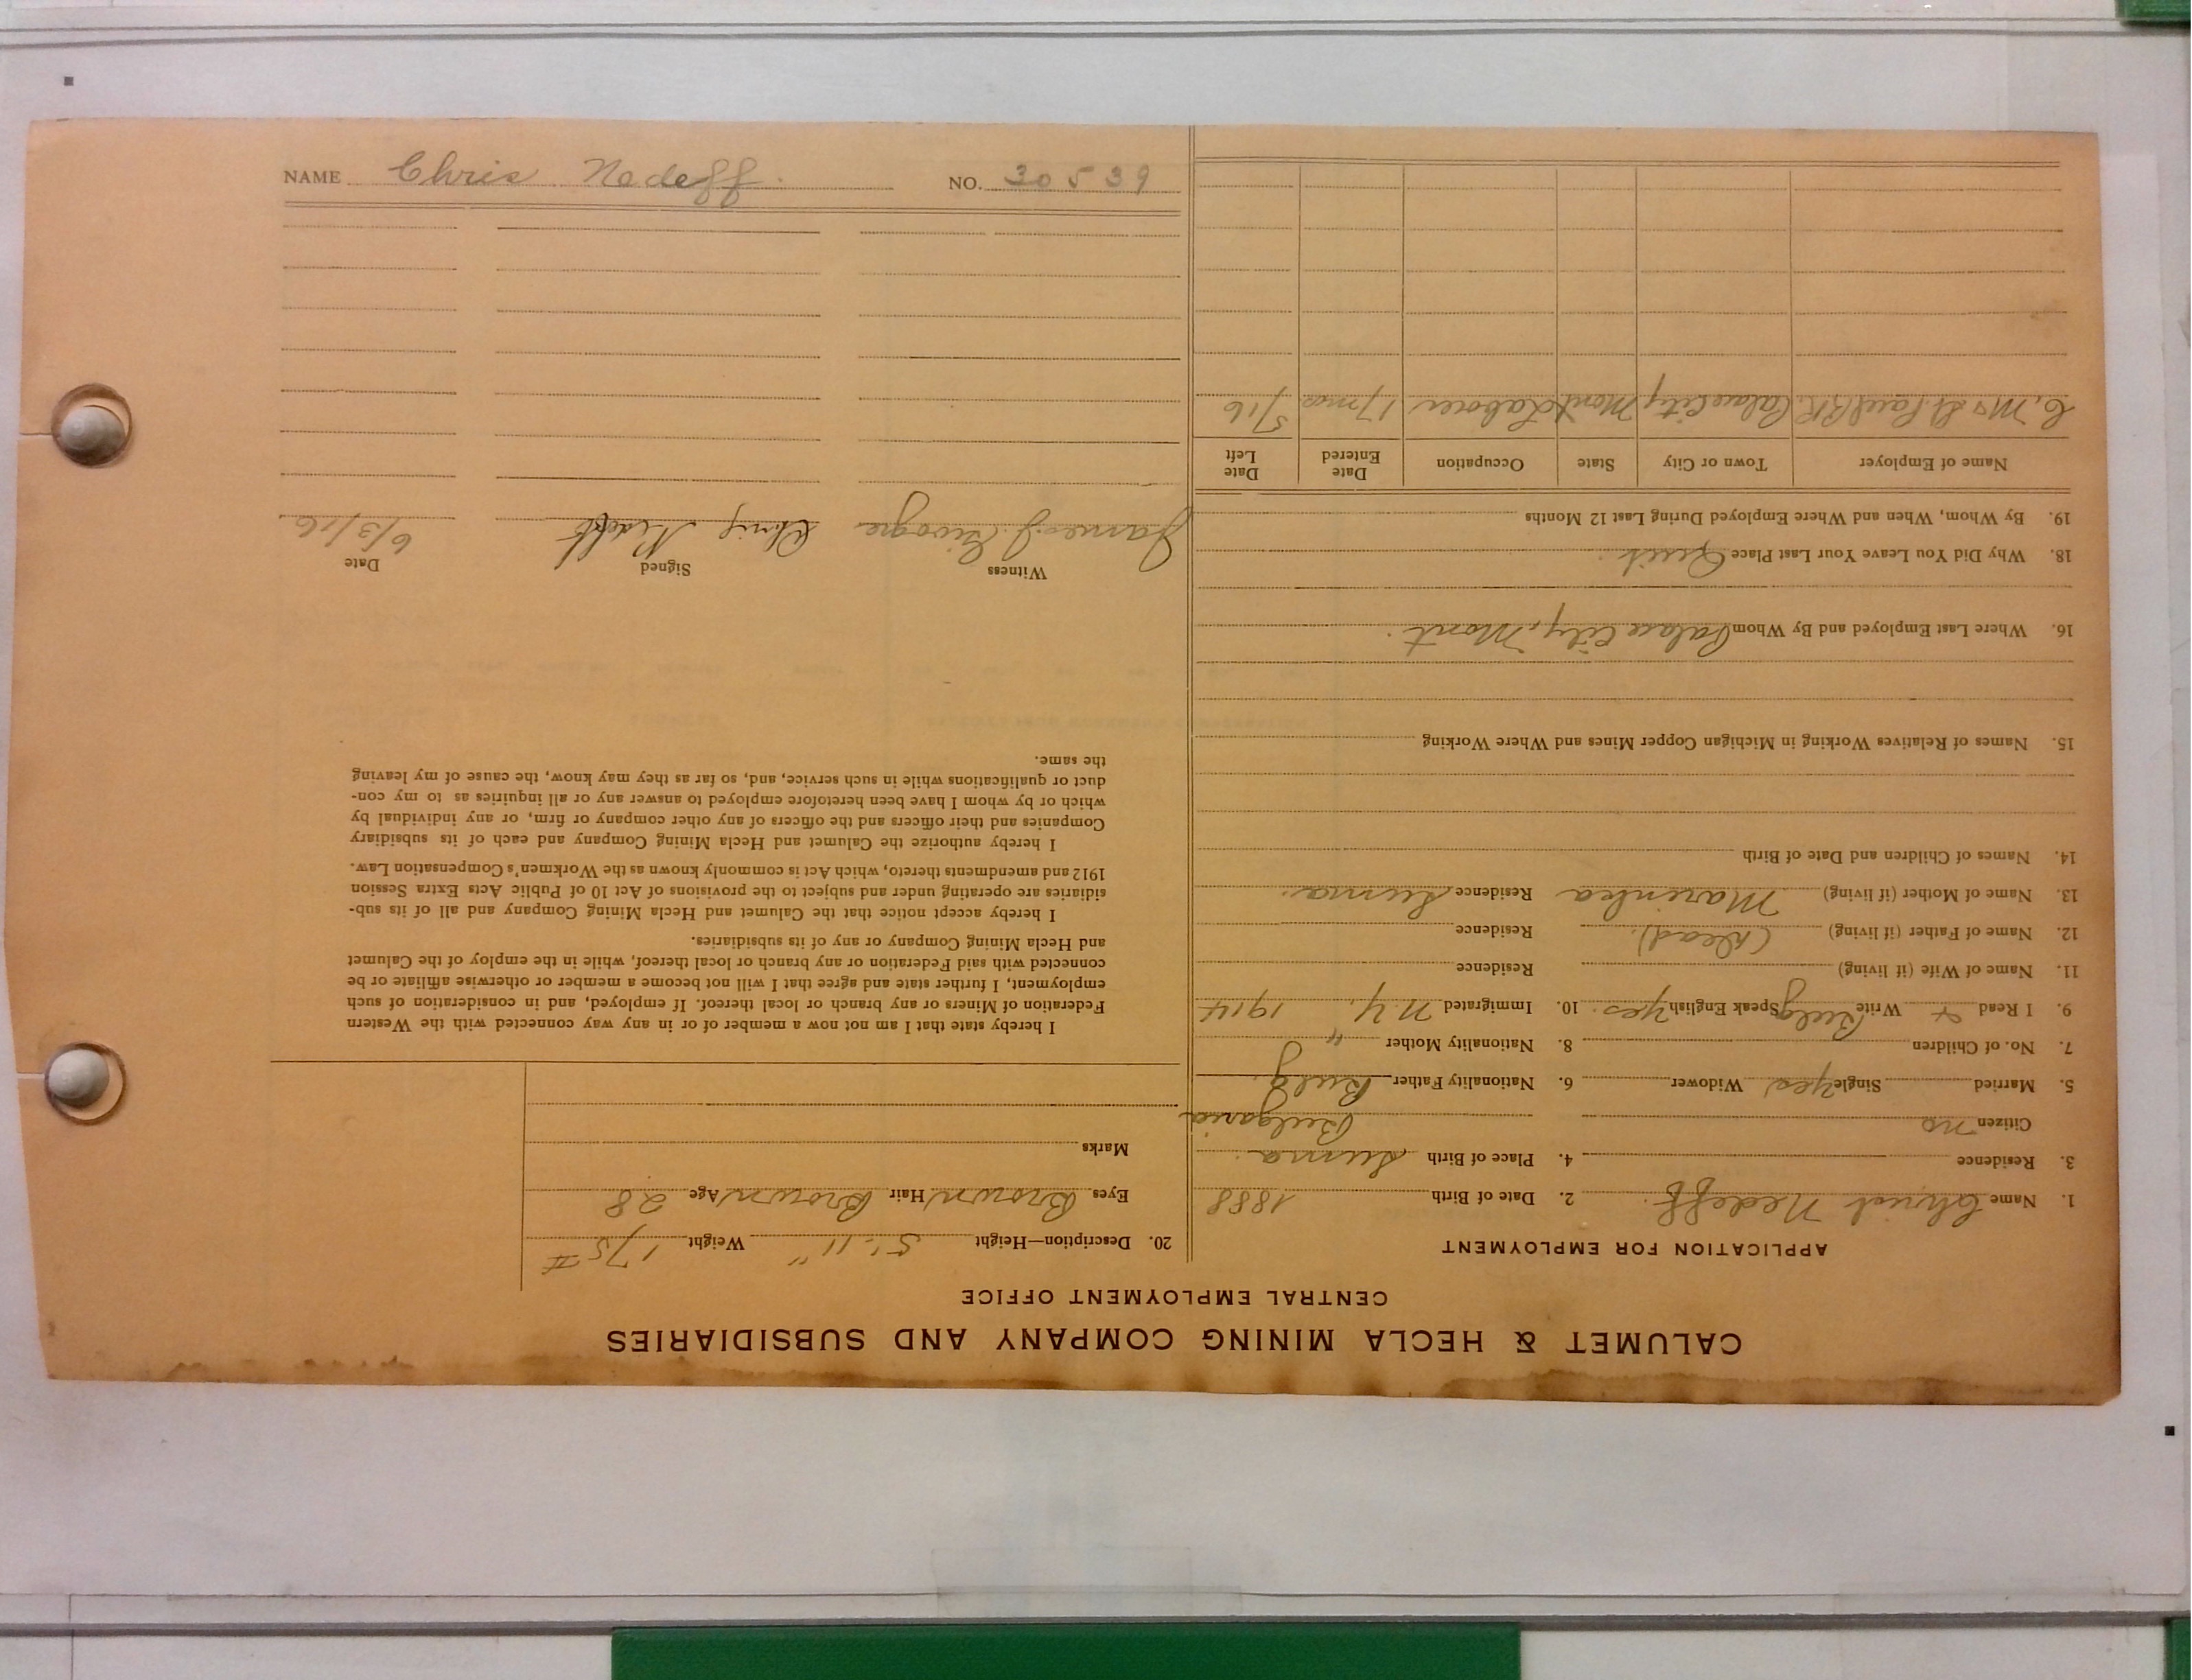 NAME Chris Nedeff NO. 30539
CALUMET & HECLA MINING COMPANY AND SUBSIDIARIES
CENTRAL EMPLOYMENT OFFICE
APPLICATION FOR EMPLOYMENT
1. Name Christ Nedeff. 2. Date of Birth 1888
3. Residence 4. Place of Birth Suma.
Citizen no Bulgaria
5. Married Single yes Widower 6. Nationality Father Bulg.
7. No. of Children 8. Nationality Mother "
9. I Read & Write Bulg Speak English yes. 10. Immigrated N.Y. 1914
11. Name of Wife (if living) Residence
12. Name of Father (if living) (Dead). Residence
13. Name of Mother (if living) Marinka Residence Suma.
14. Names of Children and Date of Birth
15. Names of Relatives Working in Michigan Copper Mines and Where Working
16. Where Last Employed and By Whom Calace City, Mont.
18. Why Did You Leave Your Last Place Quit.
19. By Whom, When and Where Employed During Last 12 Months
Name of Employer Town or City State Occupation Date Entered Date Left
C. M. & St. Paul RR. Calace City Mont Laborer 17 mos 5/16
20. Description—Height 5'. 11" Weight 175#
Eyes Brown Hair Brown Age 28
Marks
I hereby state that I am not now a member of or in any way connected with the Western
Federation of Miners or any branch or local thereof. If employed, and in consideration of such
employment, I further state and agree that I will not become a member or otherwise affiliate or be
connected with said Federation or any branch or local thereof, while in the employ of the Calumet
and Hecla Mining Company or any of its subsidiaries.
I hereby accept notice that the Calumet and Hecla Mining Company and all of its sub-
sidiaries are operating under and subject to the provisions of Act 10 of Public Acts Extra Session
1912 and amendments thereto, which Act is commonly known as the Workmen's Compensation Law.
I hereby authorize the Calumet and Hecla Mining Company and each of its subsidiary
Companies and their officers and the officers of any other company or firm, or any individual by
which or by whom I have been heretofore employed to answer any or all inquiries as to my con-
duct or qualifications while in such service, and, so far as they may know, the cause of my leaving
the same.
Witness Signed Date
James J. Chris 6/3/16